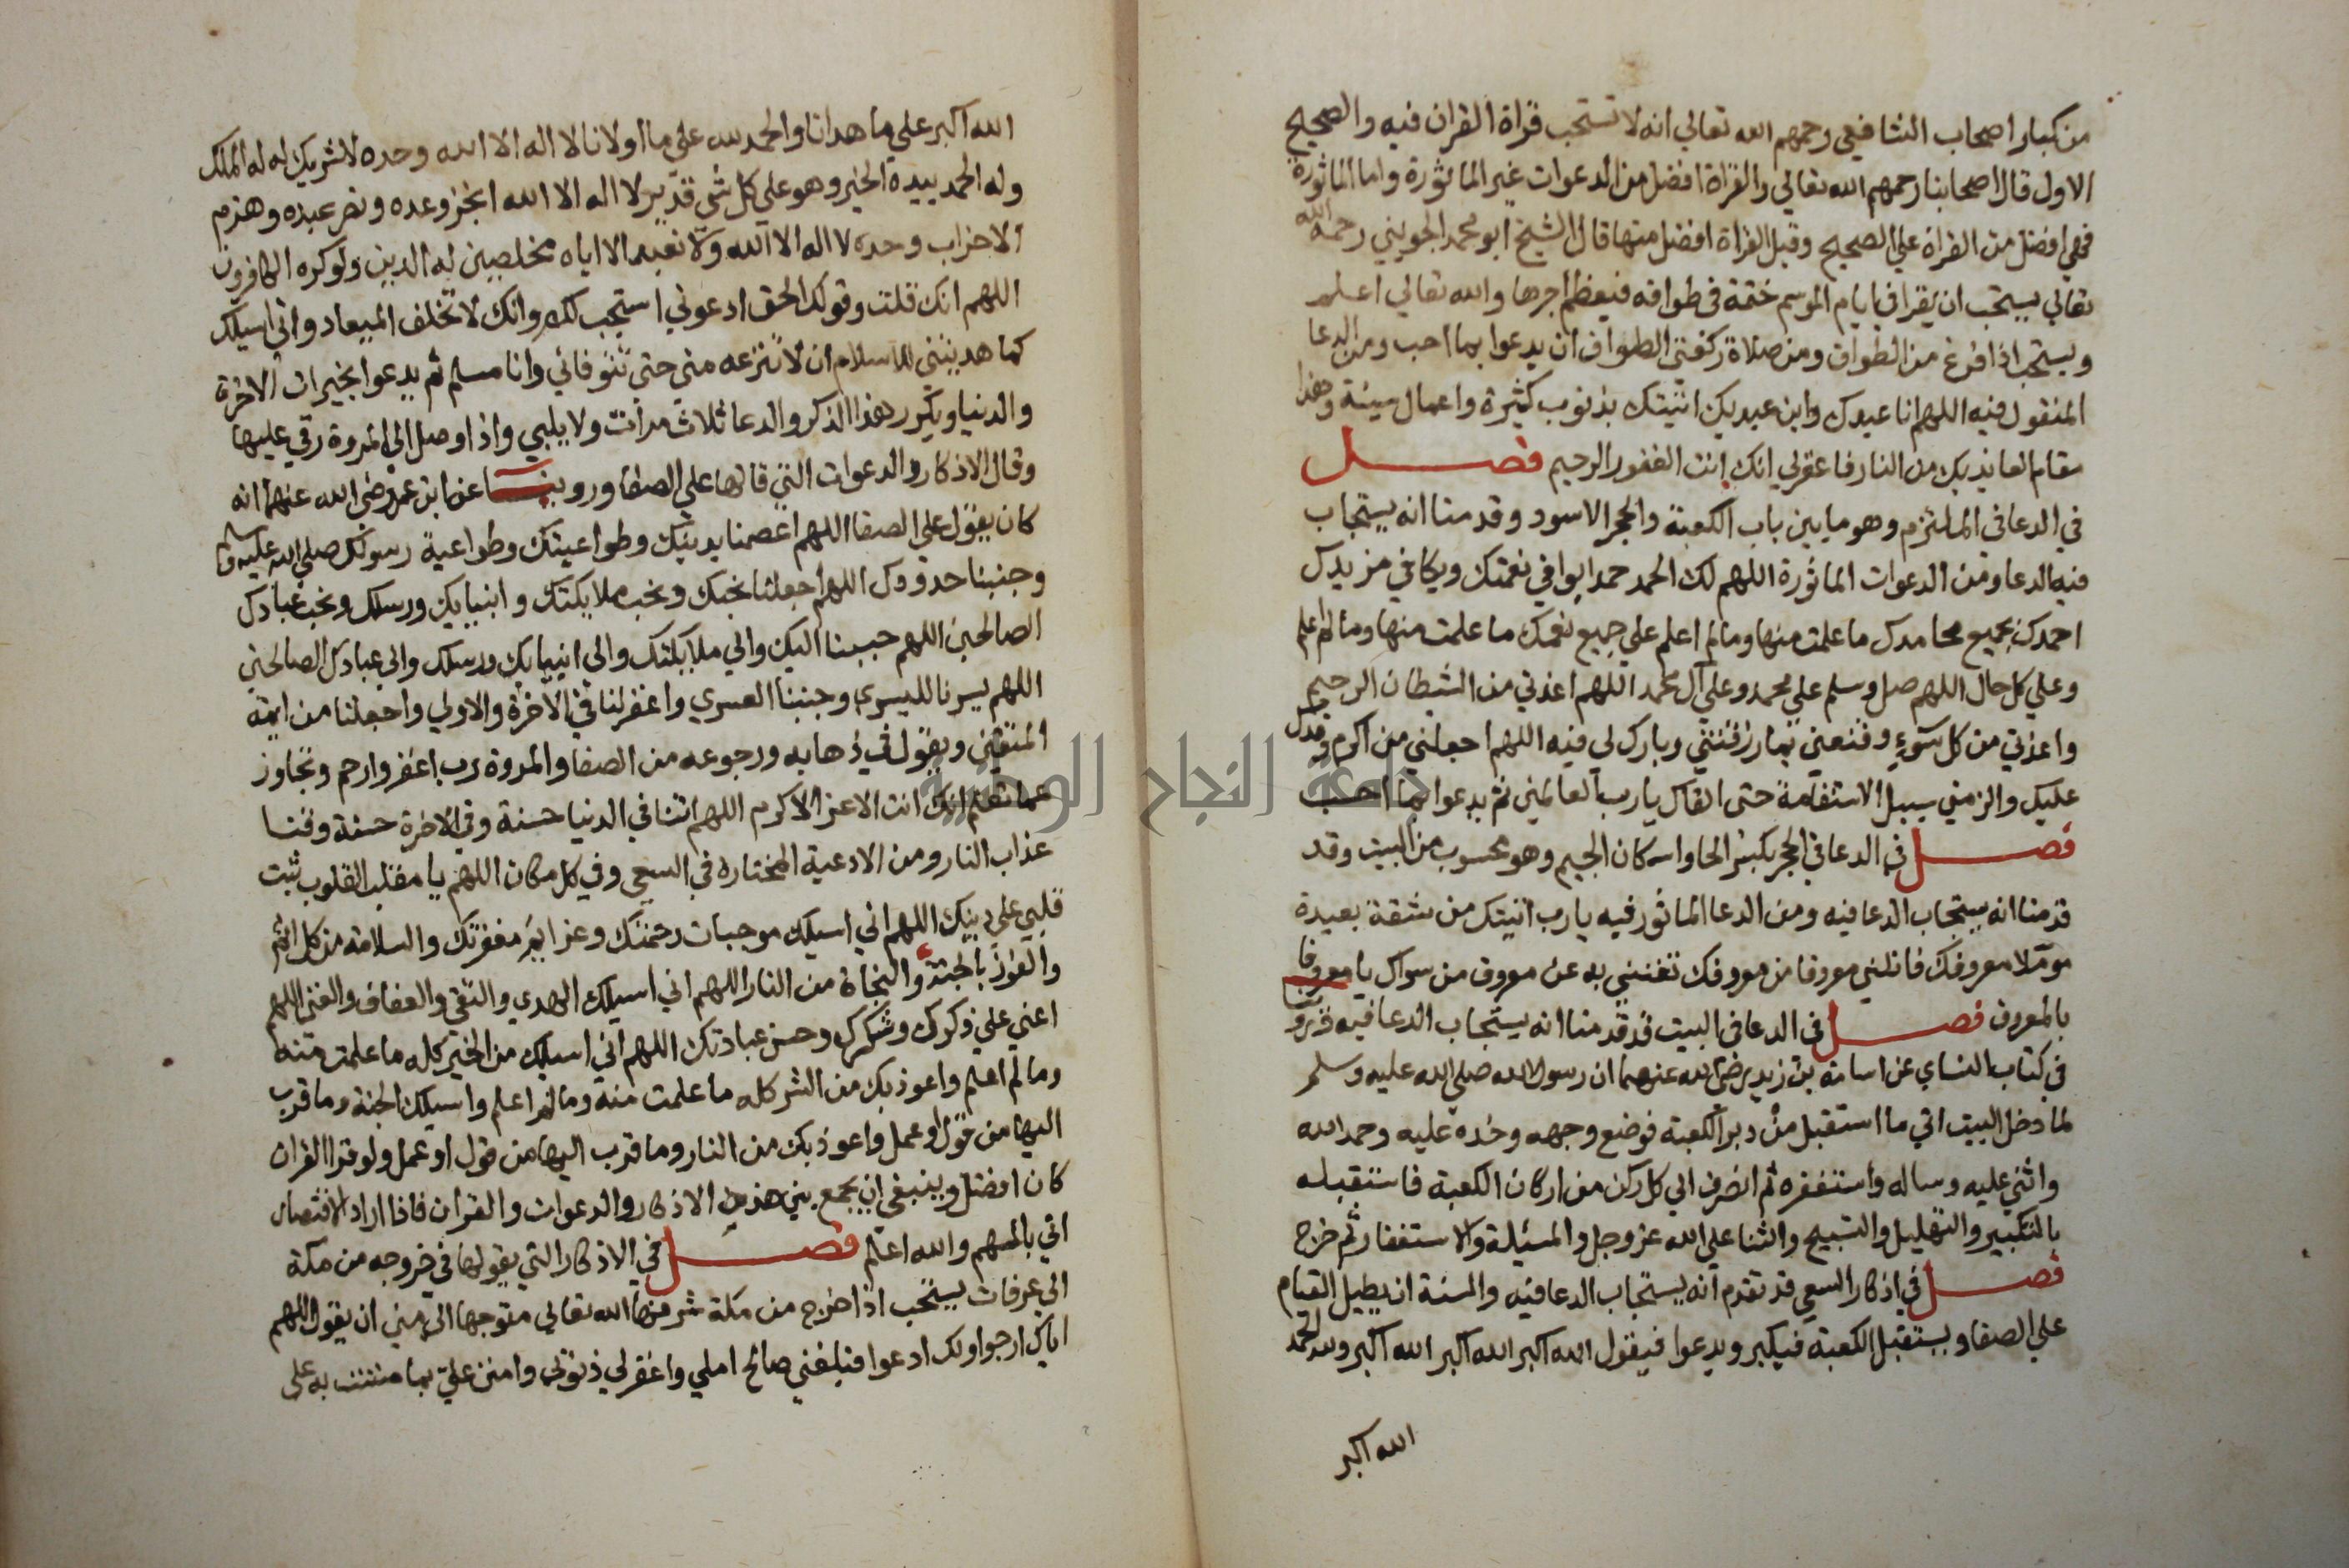 من كبار اصحاب الشافعي رحمهم الله تعالي انه لا تستحب قراة القران فيه والصحيح
الاول قال اصحابنا رحمهم الله تعالي والقراة افضل من الدعوات غير الماثورة واما الماثورة
فهي افضل من القراة علي الصحيح وقيل القراة افضل منها قال الشيخ ابو محمد الجويني رحمه الله
تعالي يستحب ان يقرا في ايام الموسم ختمة في طوافه فيعظم اجرها والله تعالي اعلم
ويستحب اذا فرغ من الطواف ومن صلاة ركعتي الطواف ان يدعوا بما احب ومن الدعا
المنقول فيه اللهم انا عبدك وابن عبدك اتيتك بذنوب كثيرة واعمال سيئة وهذا
مقام العايذ بك من النار فاغفر لي انك انت الغفور الرحيم فصل
في الدعا في الملتزم وهو ما بين باب الكعبة والحجر الاسود وقدمنا انه يستجاب
فيه الدعا ومن الدعوات الماثورة اللهم لك الحمد حمدا يوافي نعمتك ويكافي مزيدك
احمدك بجميع محامدك ما علمت منها وما لم اعلم علي جميع نعمك ما علمت منها وما لم اعلم
وعلي كل حال اللهم صل وسلم علي محمد وعلي آل محمد اللهم اعذني من الشيطان الرجيم
واعذني من كل سوء وقنعني بما رزقتني وبارك لي فيه اللهم اجعلني من اكرم وفدك
عليك والزمني سبيل الاستقامة حتى القاك يا رب العالمين ثم يدعوا بما احب
فصل في الدعا في الحجر بكسر الحا واسكان الجيم وهو محسوب من البيت وقد
قدمنا انه يستجاب الدعا فيه ومن الدعا الماثور فيه يا رب اتيتك من شقة بعيدة
موملا معروفك فانلني معروفا من معروفك تغنيني به عن معروف من سواك يا معروفا
بالمعروف فصل في الدعا في البيت قد قدمنا انه يستجاب الدعا فيه وروينا
في كتاب النساي عن اسامة بن زيد رضي الله عنهما ان رسول الله صلي الله عليه وسلم
لما دخل البيت اتي ما استقبل من دبر الكعبة فوضع وجهه وخده عليه وحمد الله
واثني عليه وساله واستغفره ثم انصرف الي كل ركن من اركان الكعبة فاستقبله
بالتكبير والتهليل والتسبيح والثنا علي الله عز وجل والمسئلة والاستغفار ثم خرج
فصل في اذكار السعي قد تقدم انه يستجاب الدعا فيه والسنة ان يطيل القيام
علي الصفا ويستقبل الكعبة فيكبر ويدعوا فيقول الله اكبر الله اكبر الله اكبر ولله الحمد
الله اكبر
الله اكبر علي ما هدانا والحمد لله علي ما اولانا لا اله الا الله وحده لا شريك له له الملك
وله الحمد بيده الخير وهو علي كل شي قدير لا اله الا الله انجز وعده ونصر عبده وهزم
الاحزاب وحده لا اله الا الله ولا نعبد الا اياه مخلصين له الدين ولو كره الكافرون
اللهم انك قلت وقولك الحق ادعوني استجب لكم وانك لا تخلف الميعاد واني اسيلك
كما هديتني للاسلام ان لا تنزعه مني حتي تتوفاني وانا مسلم ثم يدعوا بخيرات الاخرة
والدنيا ويكرر هذا الذكر والدعا ثلاث مرات ولا يلبي واذا وصل الي المروة رقي عليها
وقال الاذكار والدعوات التي قالها علي الصفا وروينا عن ابن عمر رضي الله عنهما انه
كان يقول علي الصفا اللهم اعصمنا بدينك وطواعيتك وطواعية رسولك صلي الله عليه وسلم
وجنبنا حدودك اللهم اجعلنا نحبك ونحب ملايكتك وانبيايك ورسلك ونحب عبادك
الصالحين اللهم حببنا اليك والي ملايكتك والي انبيايك ورسلك والي عبادك الصالحين
اللهم يسرنا لليسري وجنبنا العسري واغفر لنا في الاخرة والاولي واجعلنا من ايمة
المتقين ويقول في ذهابه ورجوعه من الصفا والمروة رب اغفر وارحم وتجاوز
عما تعلم انك انت الاعز الاكرم اللهم اتنا في الدنيا حسنة وفي الاخرة حسنة وقنا
عذاب النار ومن الادعية المختارة في السعي وفي كل مكان اللهم يا مقلب القلوب ثبت
قلبي علي دينك اللهم اني اسيلك موجبات رحمتك وعزايم مغفرتك والسلامة من كل اثم
والفوز بالجنة والنجاة من النار اللهم اني اسيلك الهدي والتقي والعفاف والغني اللهم
اعني علي ذكرك وشكرك وحسن عبادتك اللهم اني اسيلك من الخير كله ما علمت منه
وما لم اعلم واعوذ بك من الشر كله ما علمت منه وما لم اعلم واسيلك الجنة وما قرب
اليها من قول او عمل واعوذ بك من النار وما قرب اليها من قول او عمل ولو قرا القران
كان افضل وينبغي ان يجمع بين هذين الاذكار والدعوات والقران فاذا اراد الاقتصار
اتي بالمهم والله اعلم فصل في الاذكار التي يقولها في خروجه من مكة
الي عرفات يستحب اذا خرج من مكة شرفها الله تعالي متوجها الي مني ان يقول اللهم
اياك ارجوا ولك ادعوا فبلغني صالح املي واغفر لي ذنوبي وامنن علي بما مننت به علي
جامعة النجاح الوطنية